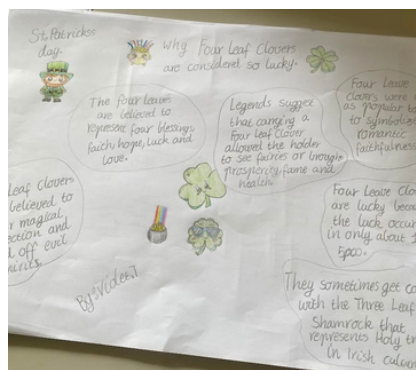 St Patricks
day.
Why Four Leaf Clovers
are considered so lucky.
The four leaves
are believed to
represent four blessings
faith, hope, luck and
love.
Legends suggest
that carrying a
Four leaf Clover
allowed the holder
to see fairies or brough
prosperity, fame and
health.
Four Leave
clovers were
as popular
to symboli
romantic
faithfulness
Leaf Clovers
believed to
magical
ection and
off evil
irits.
Four Leave Clo
are lucky becau
the luck occur
in only about
5,000.
They sometimes get co
with the Three Leaf
Shamrock that
represents Holy tr
in Irish cultu